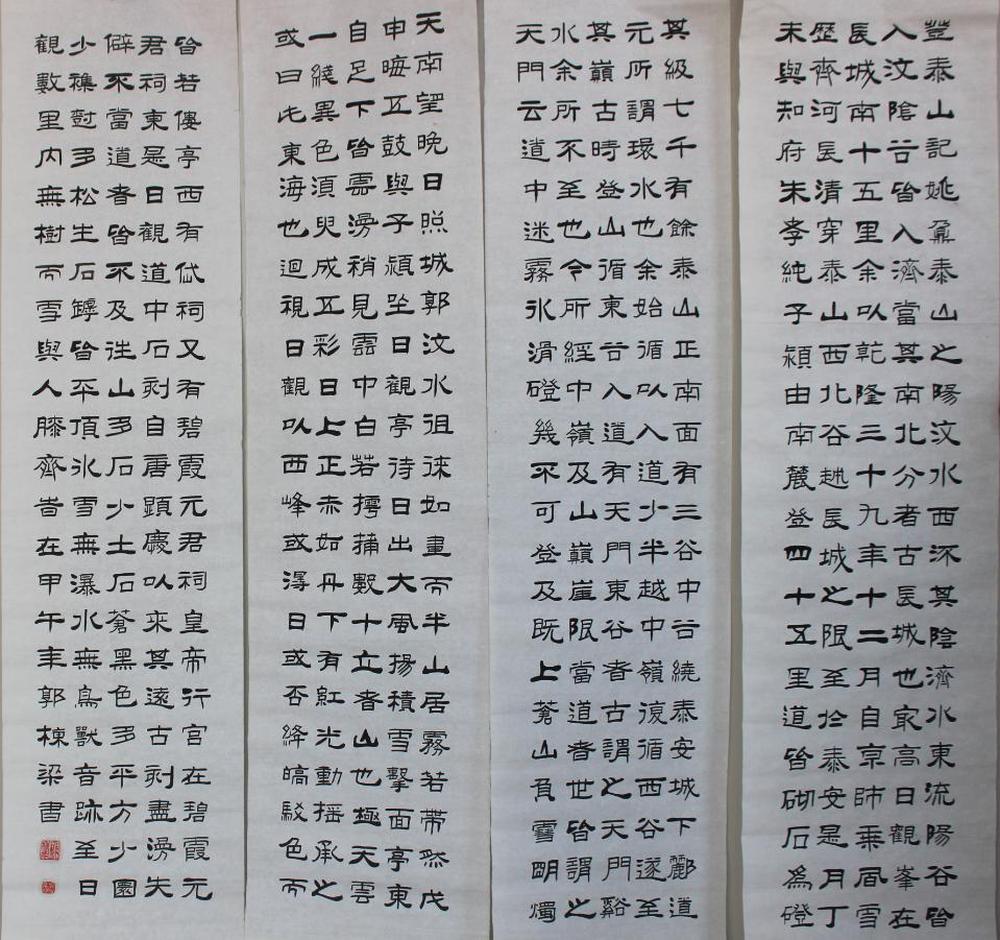 登泰山記姚鼐泰山之陽汶水西流其陰濟水東流陽谷皆
入汶陰谷皆入濟當其南北分者古長城也最高日觀峯在
長城南十五里余以乾隆三十九年十二月自京師乘風雪
歷齊河長清穿泰山西北谷越長城之限至於泰安是月丁
未與知府朱孝純子潁由南麓登四十五里道皆砌石為磴
其級七千有餘泰山正南面有三谷中谷繞泰安城下酈道
元所謂環水也余始循以入道少半越中嶺復循西谷遂至
其巔古時登山循東谷入道有天門東谷者古謂之天門谿
水余所不至也今所經中嶺及山巔崖限當道者世皆謂之
天門云道中迷霧冰滑磴幾不可登及既上蒼山負雪明燭
天南望晚日照城郭汶水徂徠如畫而半山居霧若帶然戊
申晦五鼓與子潁坐日觀亭待日出大風揚積雪擊面亭東
自足下皆雲漫稍見雲中白若摴蒱數十立者山也極天雲
一綫異色須臾成五彩日上正赤如丹下有紅光動搖承之
或曰此東海也迴視日觀以西峰或得日或否絳皜駁色而
皆若僂亭西有岱祠又有碧霞元君祠皇帝行宮在碧霞元
君祠東是日觀道中石刻自唐顯慶以來其遠古刻盡漫失
僻不當道者皆不及往山多石少土石蒼黑色多平方少圜
少襍尌多松生石罅皆平頂冰雪無瀑水無鳥獸音跡至日
觀數里內無樹而雪與人膝齊旹在甲午年郭棟梁書